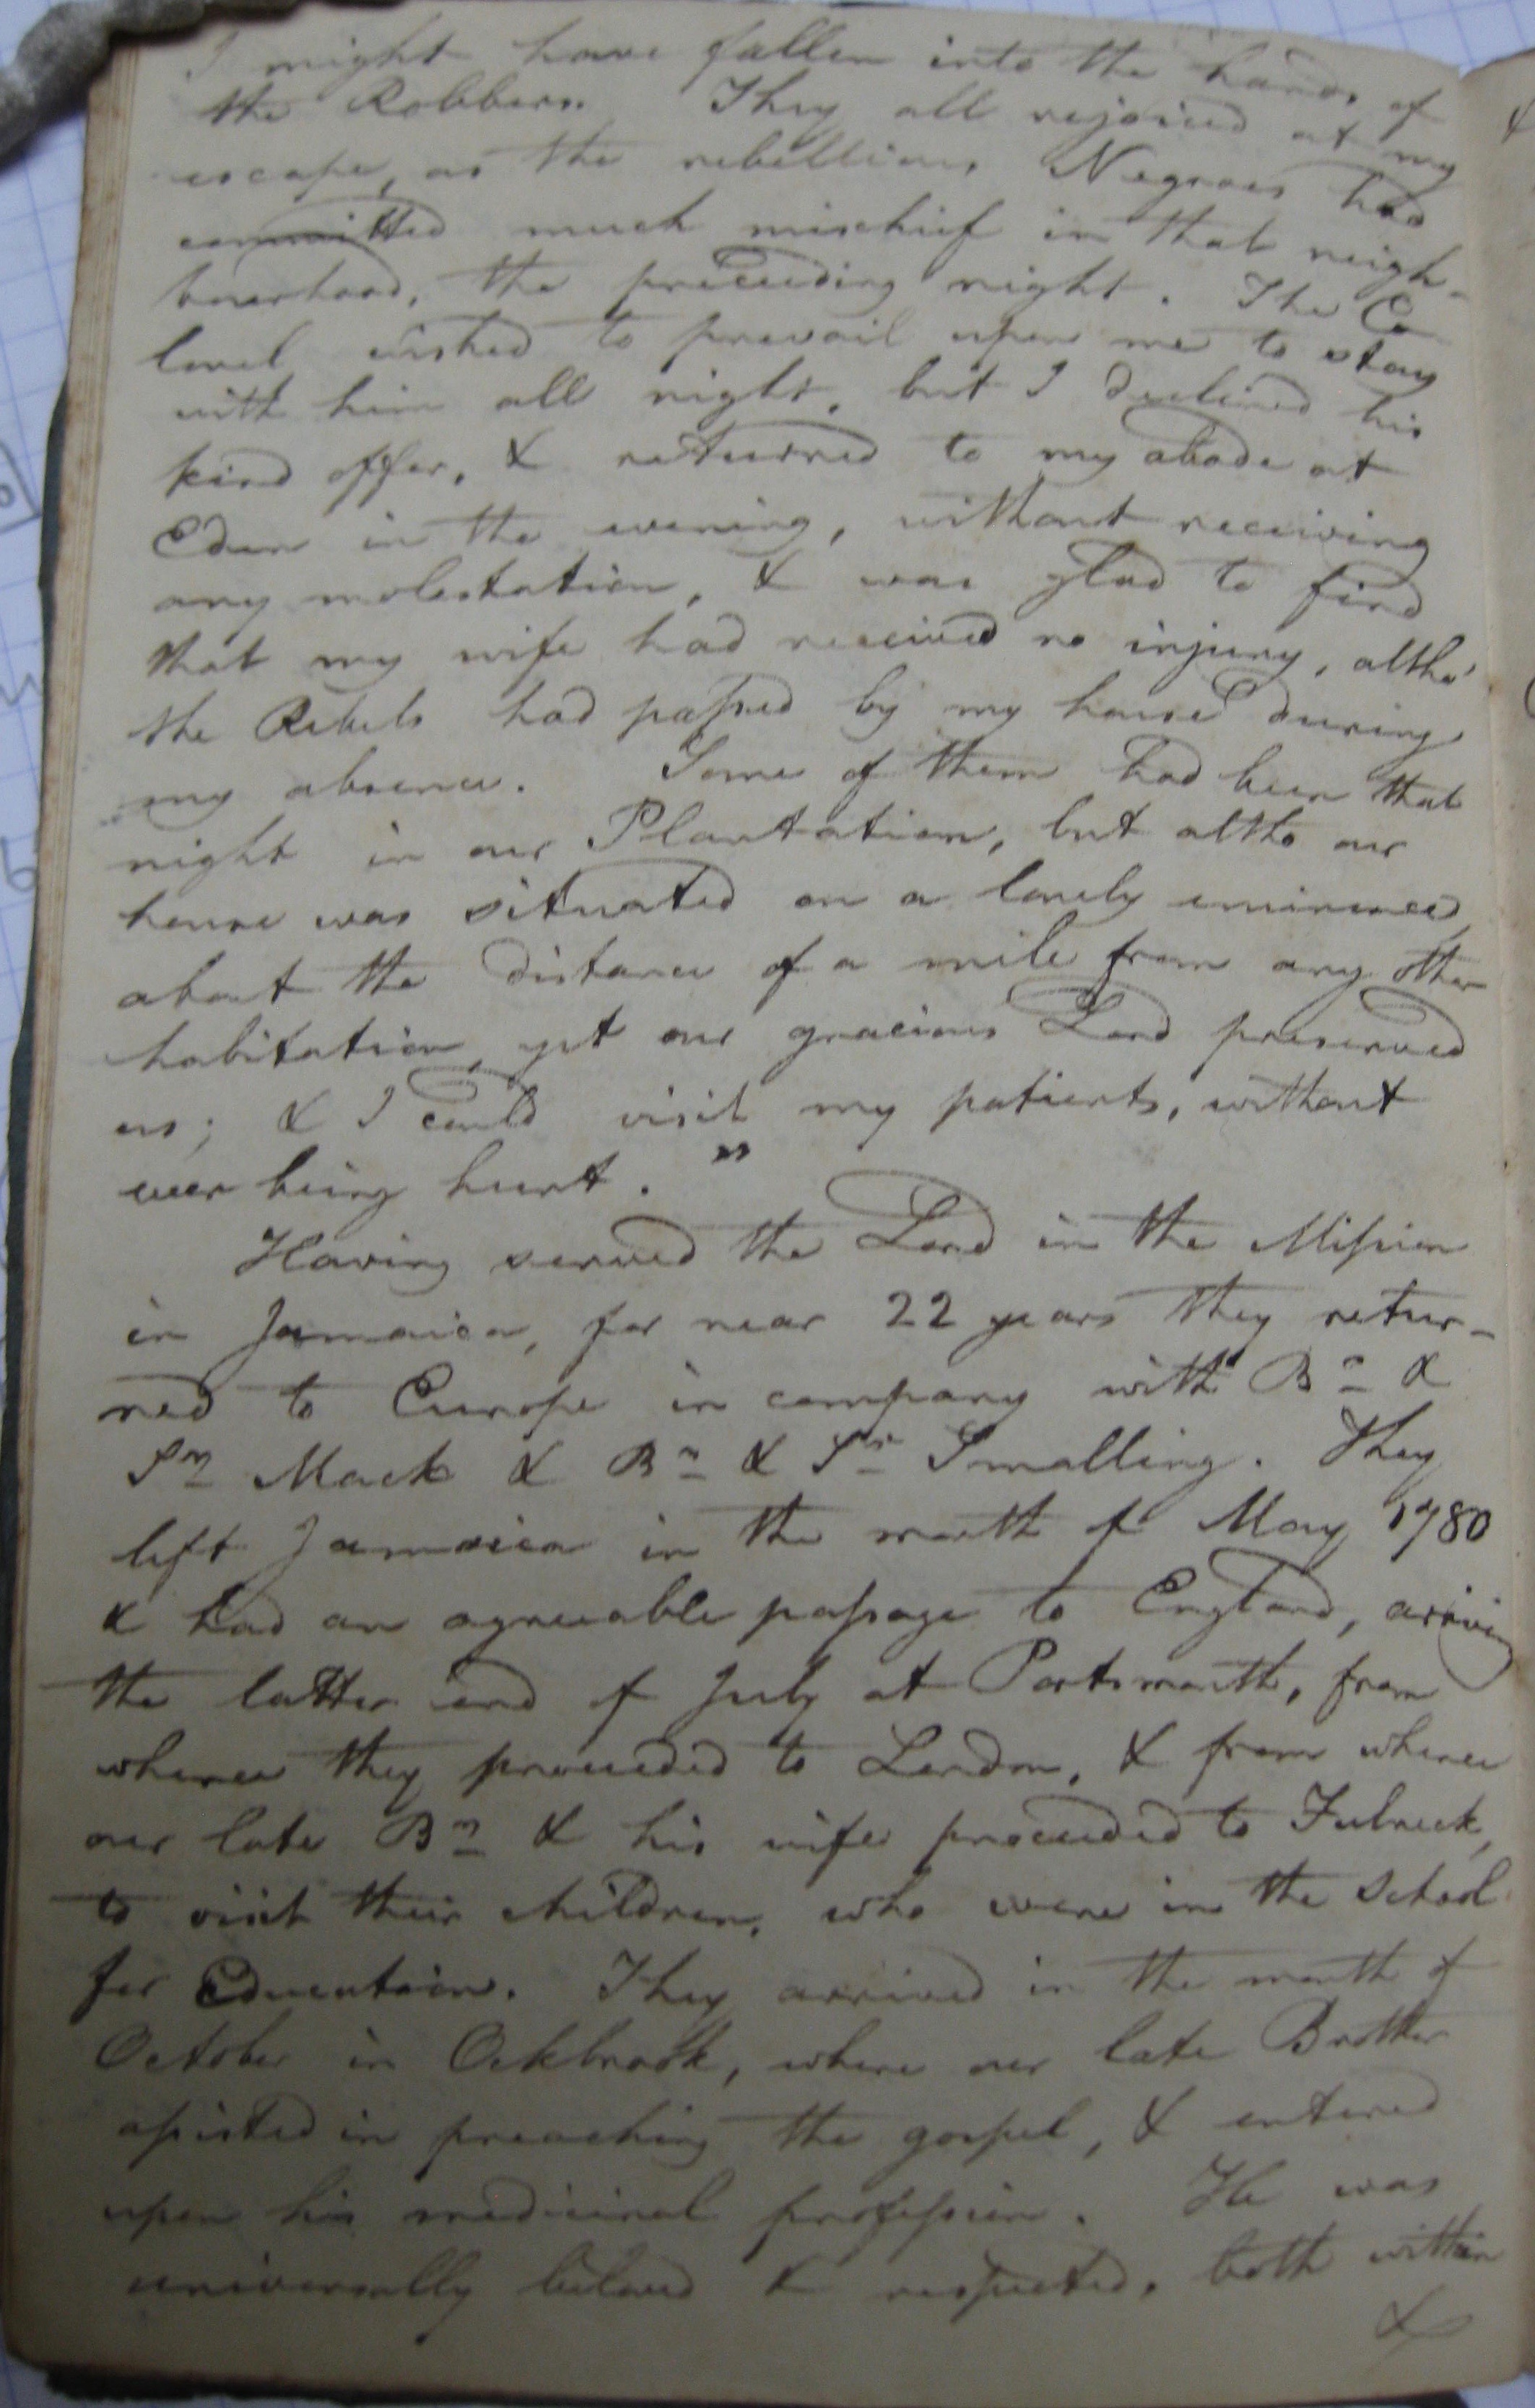 I might have fallen into the hands of
the Robbers. They all rejoiced at my
escape, as the rebellious Negroes had
committed much mischief in that neigh-
bourhood, the preceeding night. The Co
lonel wished to prevail upon me to stay
with him all night, but I declined his
kind offer, & returned to my abode at
Eden in the evening, without receiving
any molestation, & was glad to find
that my wife had received no injury, altho'
the Rebels had passed by my house during
my absence. Some of them had been that
night in our Plantation, but altho our
house was situated on a lonely eminence,
about the distance of a mile from any other
habitation, yet our gracious Lord preserved
us; & I could visit my patients, without
ever being hurt. "
Having served the Lord in the Mission
in Jamaica, for near 22 years they retur-
ned to Europe in company with Br &
Sr Mack & Br & Sr Smalling. They
left Jamaica in the month of May 1780
& had an agreeable passage to England, arriving
the latter end of July at Portsmouth, from
whence they proceeded to London, & from whence
our late Br & his wife proceeded to Fulneck,
to visit their children, who were in the School
for Education. They arrived in the month of
October in Ockbrook, where our late Brother
assisted in preaching the gospel, & entered
upon his medicinal profession. He was
universally beloved & respected, both within
&